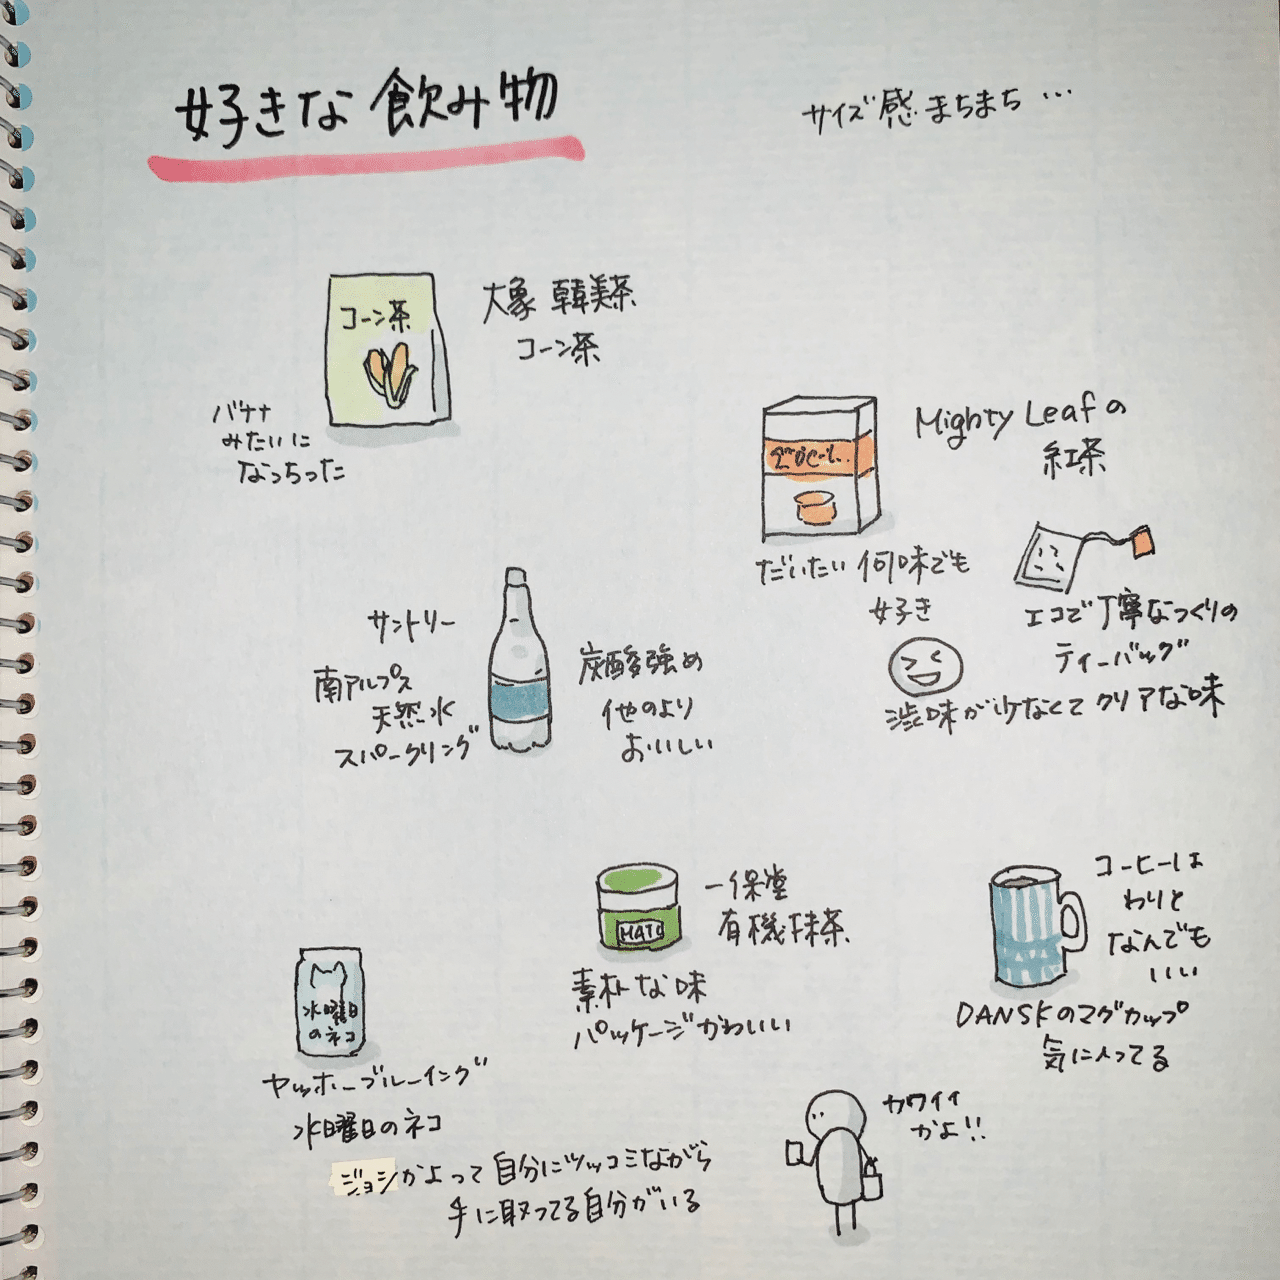 好きな飲み物
サイズ感まちまち…
コーン茶
大象 韓美茶
コーン茶
バナナ
みたいに
なっちった
Mighty Leafの
紅茶
だいたい何味でも
好き
エコで丁寧なつくりの
ティーバッグ
渋味が少なくてクリアな味
サントリー
南アルプス
天然水
スパークリング
炭酸強め
他のより
おいしい
MATC
一保堂
有機抹茶
素朴な味
パッケージかわいい
コーヒーは
わりと
なんでも
いい
DANSKのマグカップ
気に入ってる
水曜日
のネコ
ヤッホーブルーイング
水曜日のネコ
ジョシかよって自分にツッコミながら
手に取ってる自分がいる
カワイイ
かよ!!